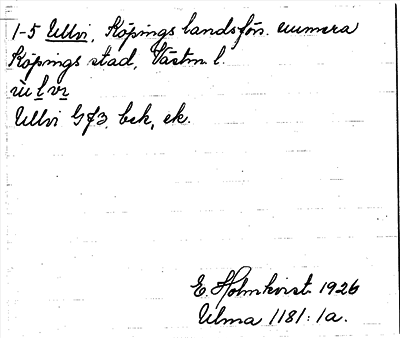 1-5 Ullvi, Köpings landsförs. numera
Köpings stad, Västm. l.
Ullvi Gf3, bek, ek.
E. Holmkvist 1926
Ulma 1181:1a.